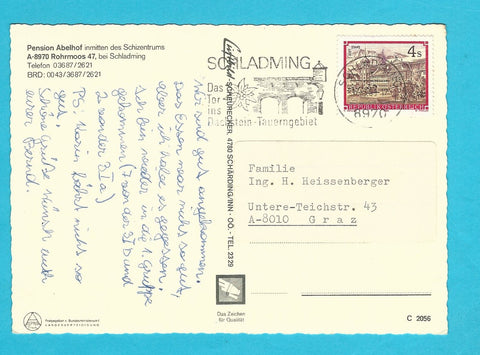 Pension Abelhof inmitten des Schizentrums
A-8970 Rohrmoos 47, bei Schladming
Telefon 03687/2621
BRD: 0043/3687/2621
SCHLADMING
Das
Tor
ins
Dachstein-Tauerngebiet
8970
4 S
REPUBLIK ÖSTERREICH
4780 SCHÄRDING/INN - OÖ. - TEL 2329
Wir sind gut angekommen.
Das Essen war nicht so gut,
aber ich habe es gegessen.
Ich bin wieder in die 1. Gruppe
gekommen (7 von der 3ID und
2 von der 3Ia)
PS: Mario fährt nicht so
gut!
Schöne Grüße wünscht euch
euren Bernd.
Familie
Ing. H. Heissenberger
Untere-Teichstr. 43
A-8010 Graz
Das Zeichen
für Qualität
C 2056